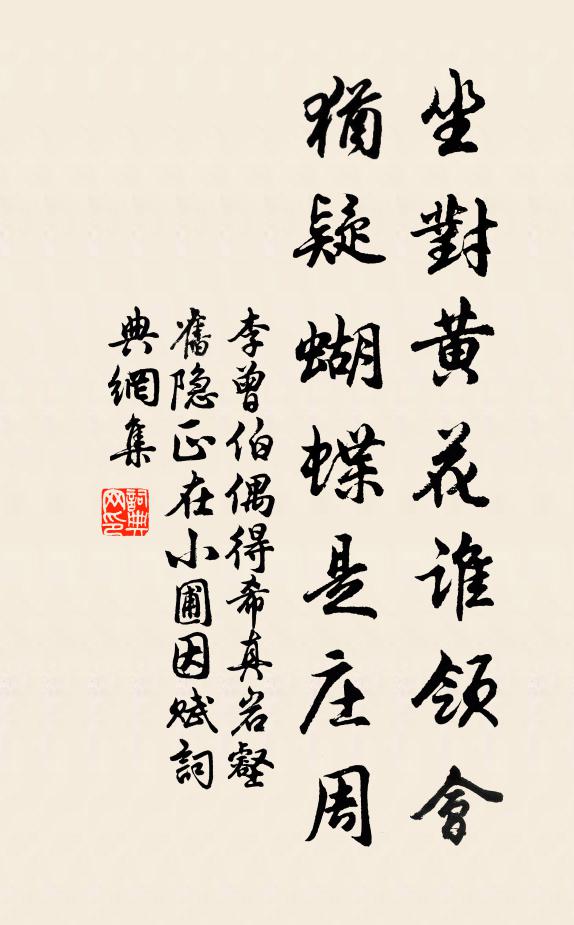 坐對黃花誰領會
猶疑蝴蝶是庄周
李曾伯偶得希真岩壑
舊隐正在小圃因赋詞
典網集
詞典
网印